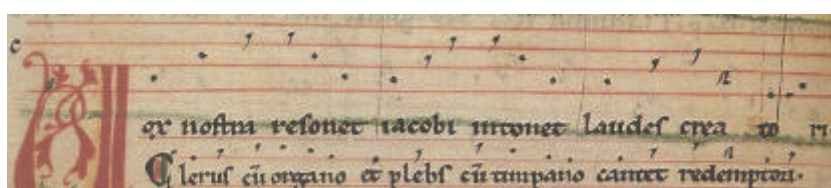 c
Vox nostra resonet iacobi intonet laudes creato ri
Clerus cū organo et plebs cū timpano cantet redemptori.